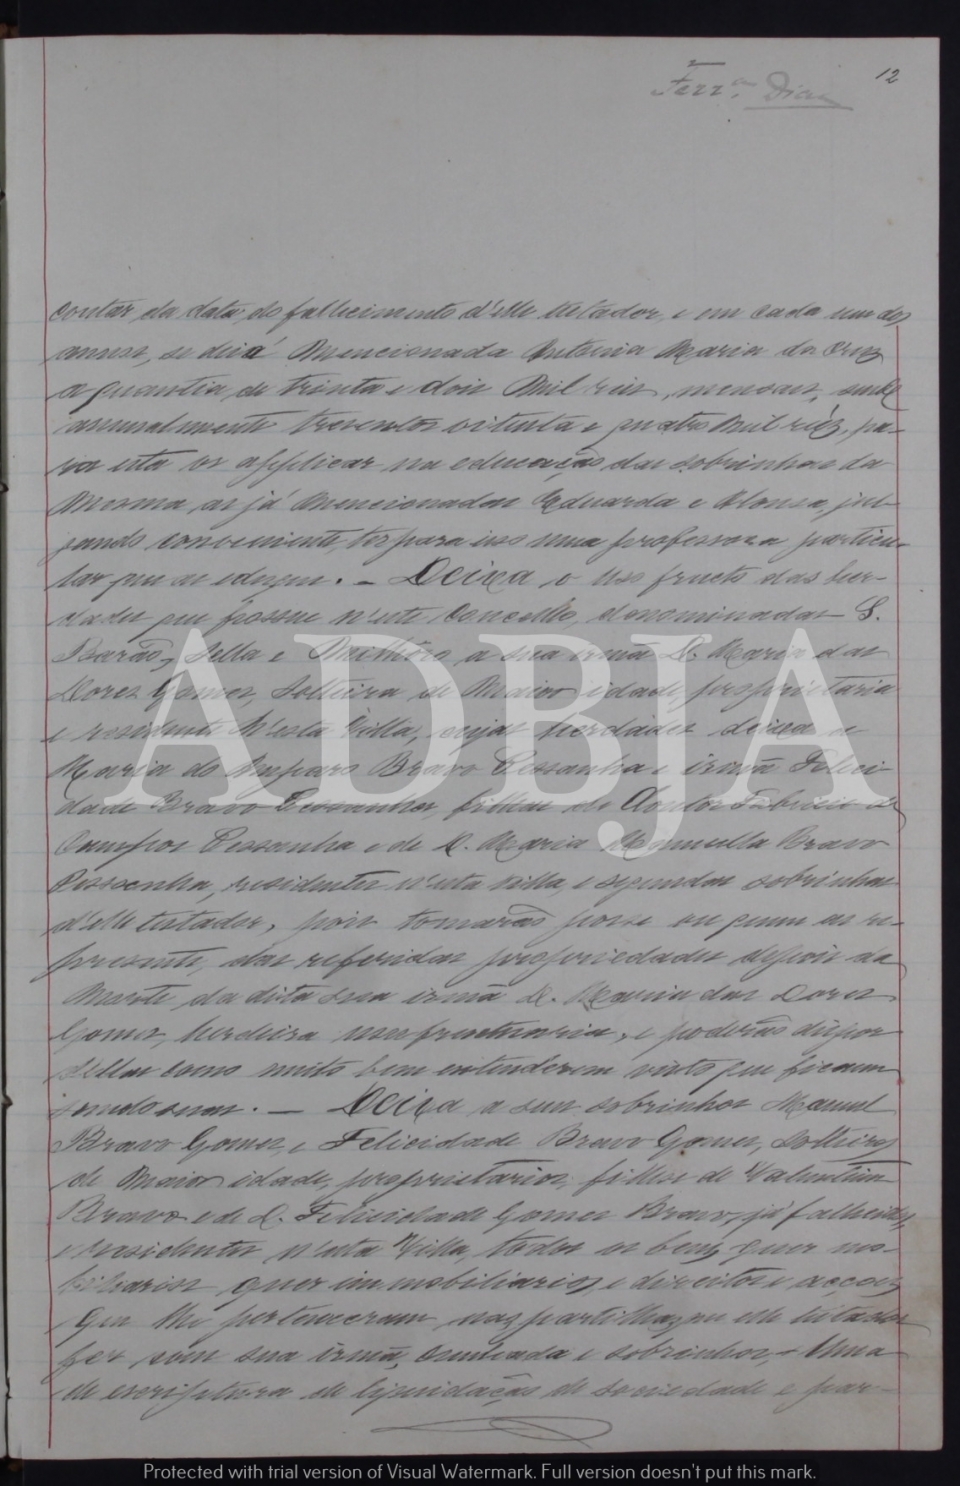 12
Ferr.ª Dias
contar da data do fallecimento d'elle testador, e em cada um dos
annos, se dirá mencionada Antonia Maria da Cruz
a quantia de trinta e dois mil reis, mensaes,
annualmente tresentos oitenta e quatro mil réis, pa-
ra esta os applicar na educação das sobrinhas da
mesma, as já mencionadas Eduarda e Alonsa, jul-
gando conveniente, ter para isso uma professora particu-
lar que as eduque. — Deixa o uso fructo das her-
dades que possue n'este concelho, denominadas S.
Barão, Sella e a sua irmã D. Maria das
Dores Gomes, solteira de maior idade, proprietaria
e residente n'esta Villa, cujas herdades deixa a
Maria do Amparo Bravo Pessanha e irmã Felici-
dade Bravo Pessanha, filhas do Doutor Fabricio de
Campos Pessanha e de D. Maria Manuella Bravo
Pessanha, residentes n'esta villa, e segundas sobrinhas
d'elle testador, pois tomarão posse ou quem as re-
presente, das referidas propriedades depois da
morte da dita sua irmã D. Maria das Dores
Gomes, herdeira usufructuaria, e poderão dispor
d'ellas como muito bem entenderem visto que ficam
sendo suas. — Deixa a seus sobrinhos Manuel
Bravo Gomes, e Felicidade Bravo Gomes, solteiros
de maior idade, proprietarios, filhos de Valentim
Bravo e de D. Felicidade Gomes Bravo, já fallecidos,
e residentes n'esta Villa, todos os bens quer mo-
biliarios quer immobiliarios, e direitos e acções
que lhe pertenceram, nas partilhas que elle testador
fez com sua irmã, cunhada e sobrinhos, — Uma
de escriptura de liquidação de sociedade e par-
ADBJA
Protected with trial version of Visual Watermark. Full version doesn't put this mark.